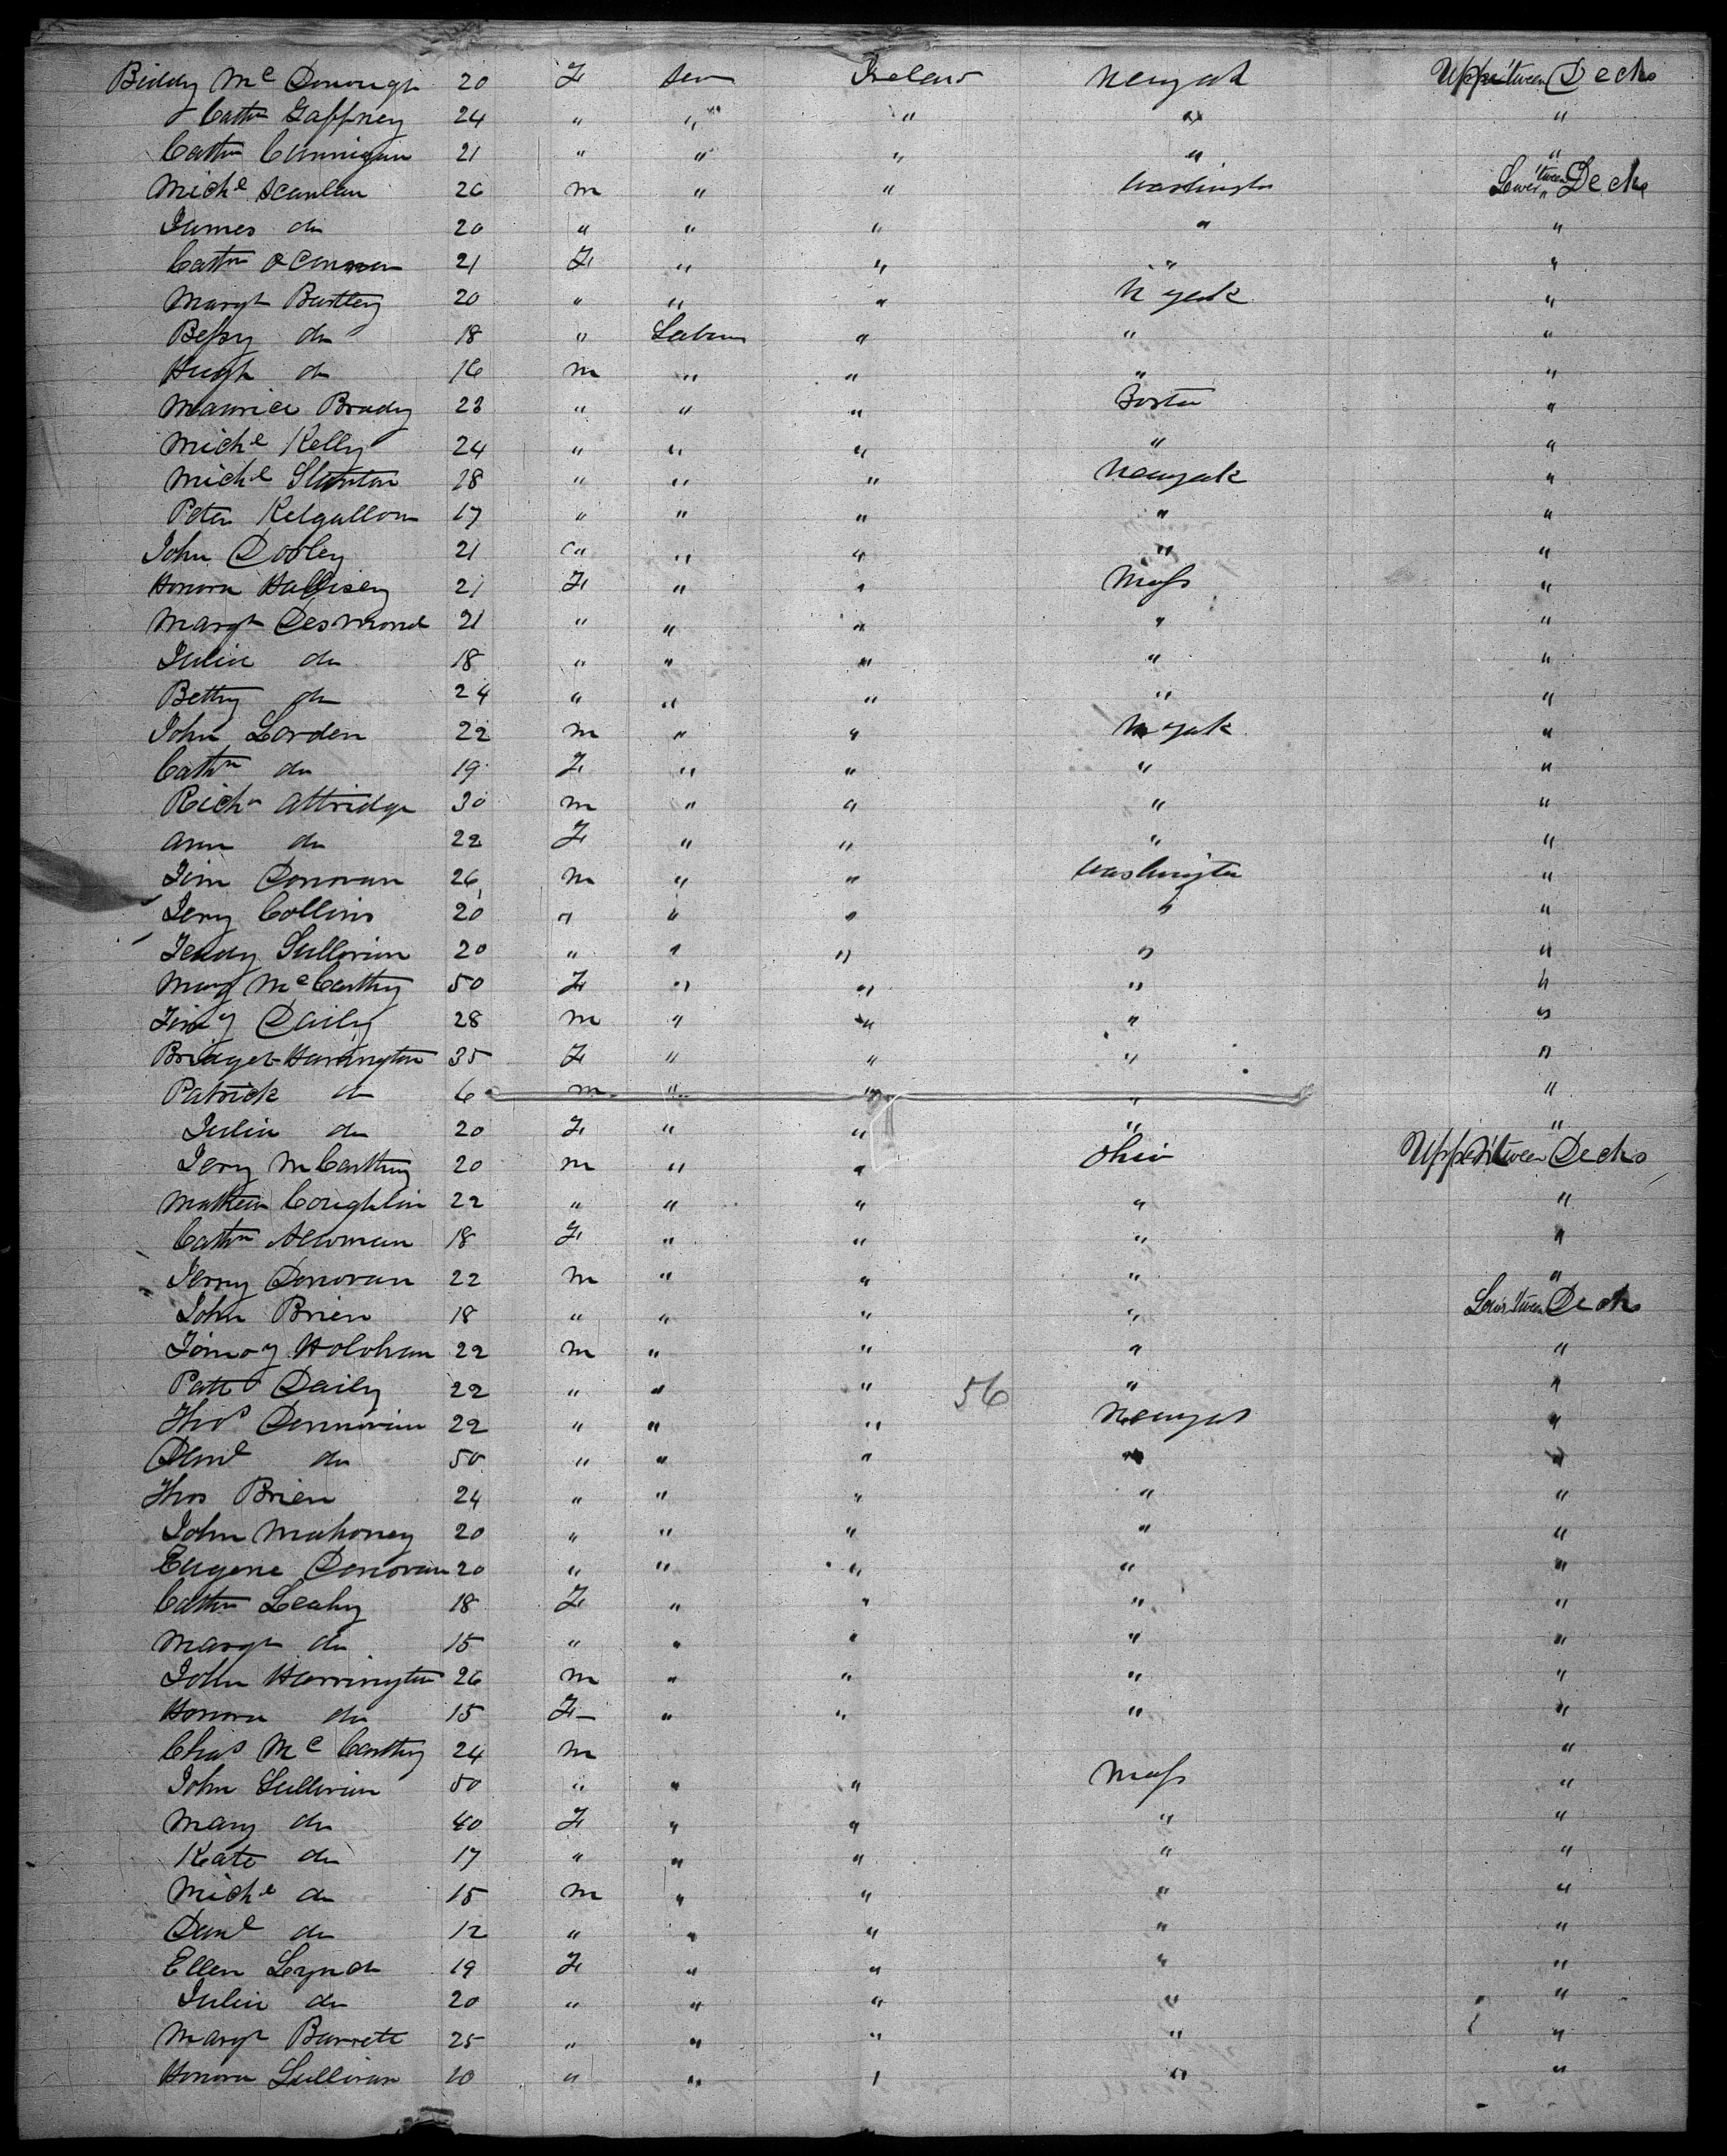 Biddy McDonough 20 F Ser Ireland Newyork Upper 'tween Decks
Cathn Gaffney 24 " " " " "
Cathn Cunnigan 21 " " " " "
Michl Scanlan 26 m " " Washington Lower 'tween Decks
James do 20 " " " " "
Cathn O Connor 21 F " " " "
Margt Bartley 20 " " " N York "
Bessy do 18 " Labour " " "
Hugh do 16 m " " " "
Maurice Brady 23 " " " Boston "
Michl Kelly 24 " " " " "
Michl Stanton 28 " " " Newyork "
Peter Kilgallon 17 " " " " "
John Dooley 21 " " " " "
Honora Hallisey 21 F " " Mass "
Margt Desmond 21 " " " " "
Julia do 18 " " " " "
Betty do 24 " " " " "
John Lorden 22 m " " N York "
Cathn do 19 F " " " "
Richd Attridge 30 m " " " "
Ann do 22 F " " " "
Tim Donovan 26 m " " Washington "
Jery Collins 20 " " " " "
Teady Sullivan 20 " " " " "
Mary McCarthy 50 F " " " "
Timy Daily 28 m " " " "
Bridget Harrington 35 F " " " "
Patrick do 6 m " " " "
Julia do 20 F " " " "
Jery McCarthy 20 m " " Ohio Upper 'tween Decks
Mathew Coughlin 22 " " " " "
Cathn Newman 18 F " " " "
Jerry Donovan 22 m " " " "
John Brien 18 " " " " Lower 'tween Decks
Timoy Holohan 22 m " " " "
Patt Daily 22 " " " 56 " "
Thos Dennovan 22 " " " Newyork "
Danl do 50 " " " " "
Thos Brien 24 " " " " "
John Mahoney 20 " " " " "
Eugene Donovan 20 " " " " "
Cathn Leahy 18 F " " " "
Margt do 15 " " " " "
John Harrington 26 m " " " "
Honora do 15 F " " " "
Chas McCarthy 24 m "
John Sullivan 50 " " " Mass "
Mary do 40 F " " " "
Kate do 17 " " " " "
Michl do 15 m " " " "
Danl do 12 " " " " "
Ellen Lynch 19 F " " " "
Julia do 20 " " " " "
Margt Barrett 25 " " " " "
Honora Sullivan 10 " " " " "